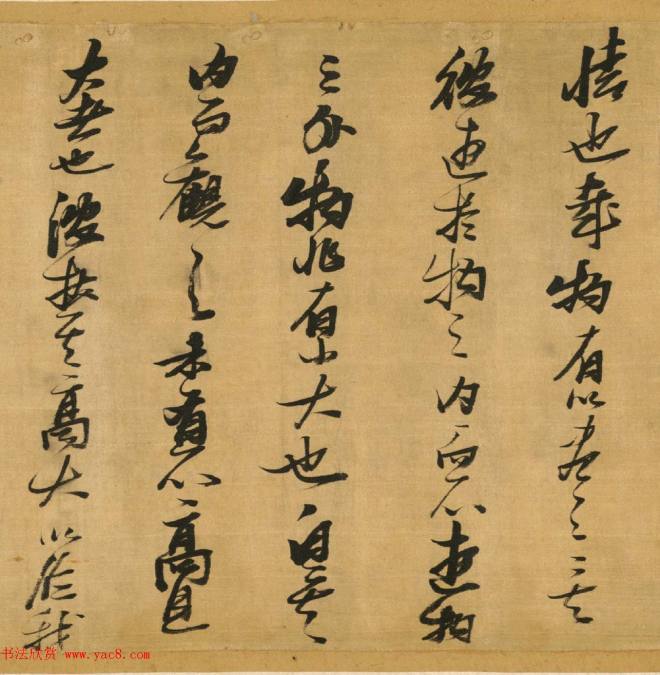 情也哉物有以盖之矣
彼遊於物之内而不遊物
之外物非有小大也自其
内而觀之未有不高且
大者也彼挾其高大以臨我
书法欣赏 www.yac8.com